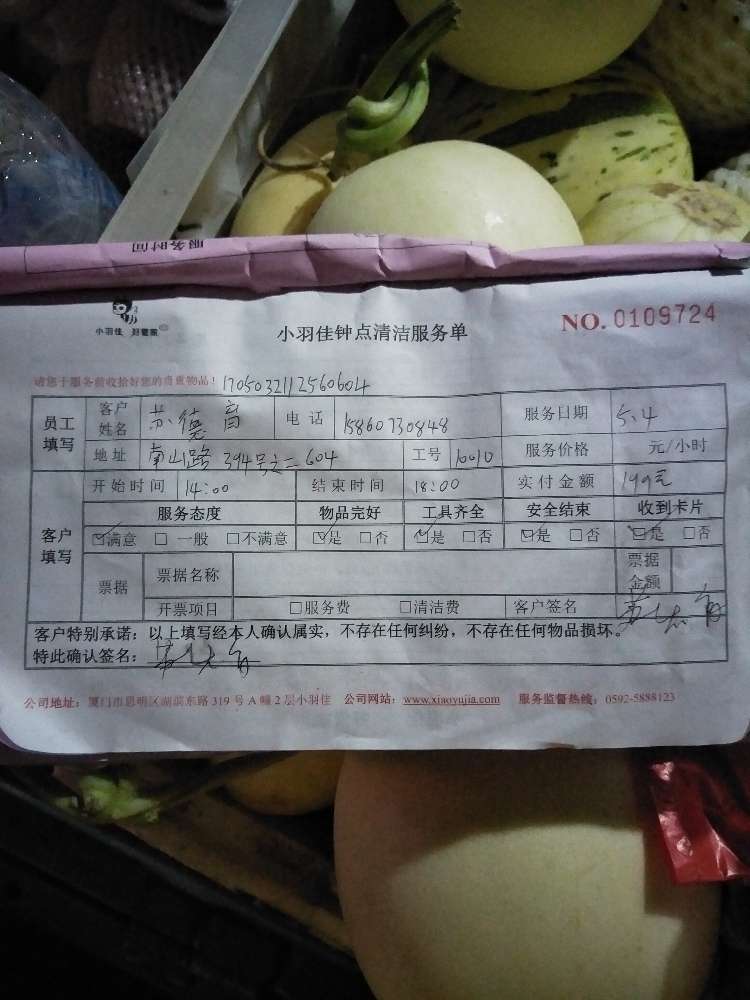 服务时间
小羽佳 好管家
小羽佳钟点清洁服务单
NO. 0109724
请您于服务前收拾好您的贵重物品! 1705032112560604
员工填写 客户姓名 苏德育 电话 15860730848 服务日期 5.4
地址 南山路394号之二604 工号 10010 服务价格 元/小时
开始时间 14:00 结束时间 18:00 实付金额 199元
客户填写 服务态度 物品完好 工具齐全 安全结束 收到卡片
☑满意 □一般 □不满意 ☑是 □否 ☑是 □否 ☑是 □否 ☑是 □否
票据 票据名称 票据金额
开票项目 □服务费 □清洁费 客户签名
客户特别承诺:以上填写经本人确认属实,不存在任何纠纷,不存在任何物品损坏。
特此确认签名:
公司地址:厦门市思明区湖滨东路319号A幢2层小羽佳 公司网站:www.xiaoyujia.com 服务监督热线:0592-5888123